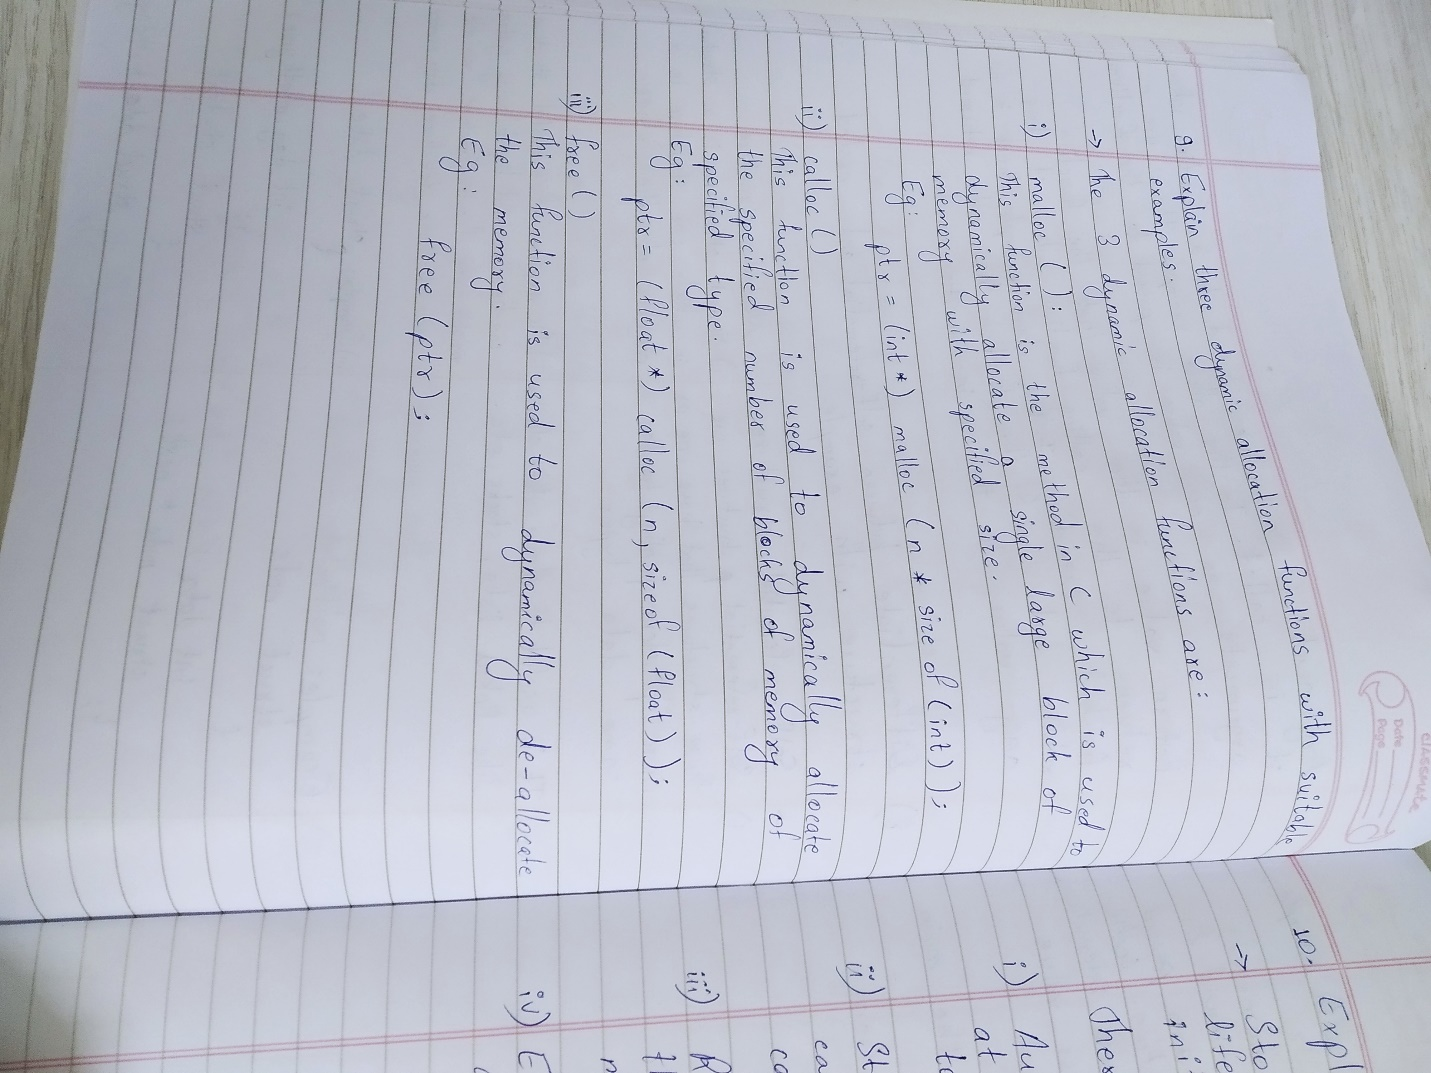 classmate
Date
Page
9. Explain three dynamic allocation functions with suitable
examples.
→ The 3 dynamic allocation functions are:
i) malloc ( ):
This function is the method in C which is used to
dynamically allocate a single large block of
memory with specified size.
Eg:
ptr = (int *) malloc (n * size of (int));
ii) calloc ( )
This function is used to dynamically allocate
the specified number of blocks of memory of
specified type.
Eg:
ptr = (float *) calloc (n, sizeof (float));
iii) free ( )
This function is used to dynamically de-allocate
the memory.
Eg:
free (ptr);
10. Expl
→ Sto
life
ini
Ther
i) Au
at
to
ii) St
ca
ca
iii) R
n
iv) E